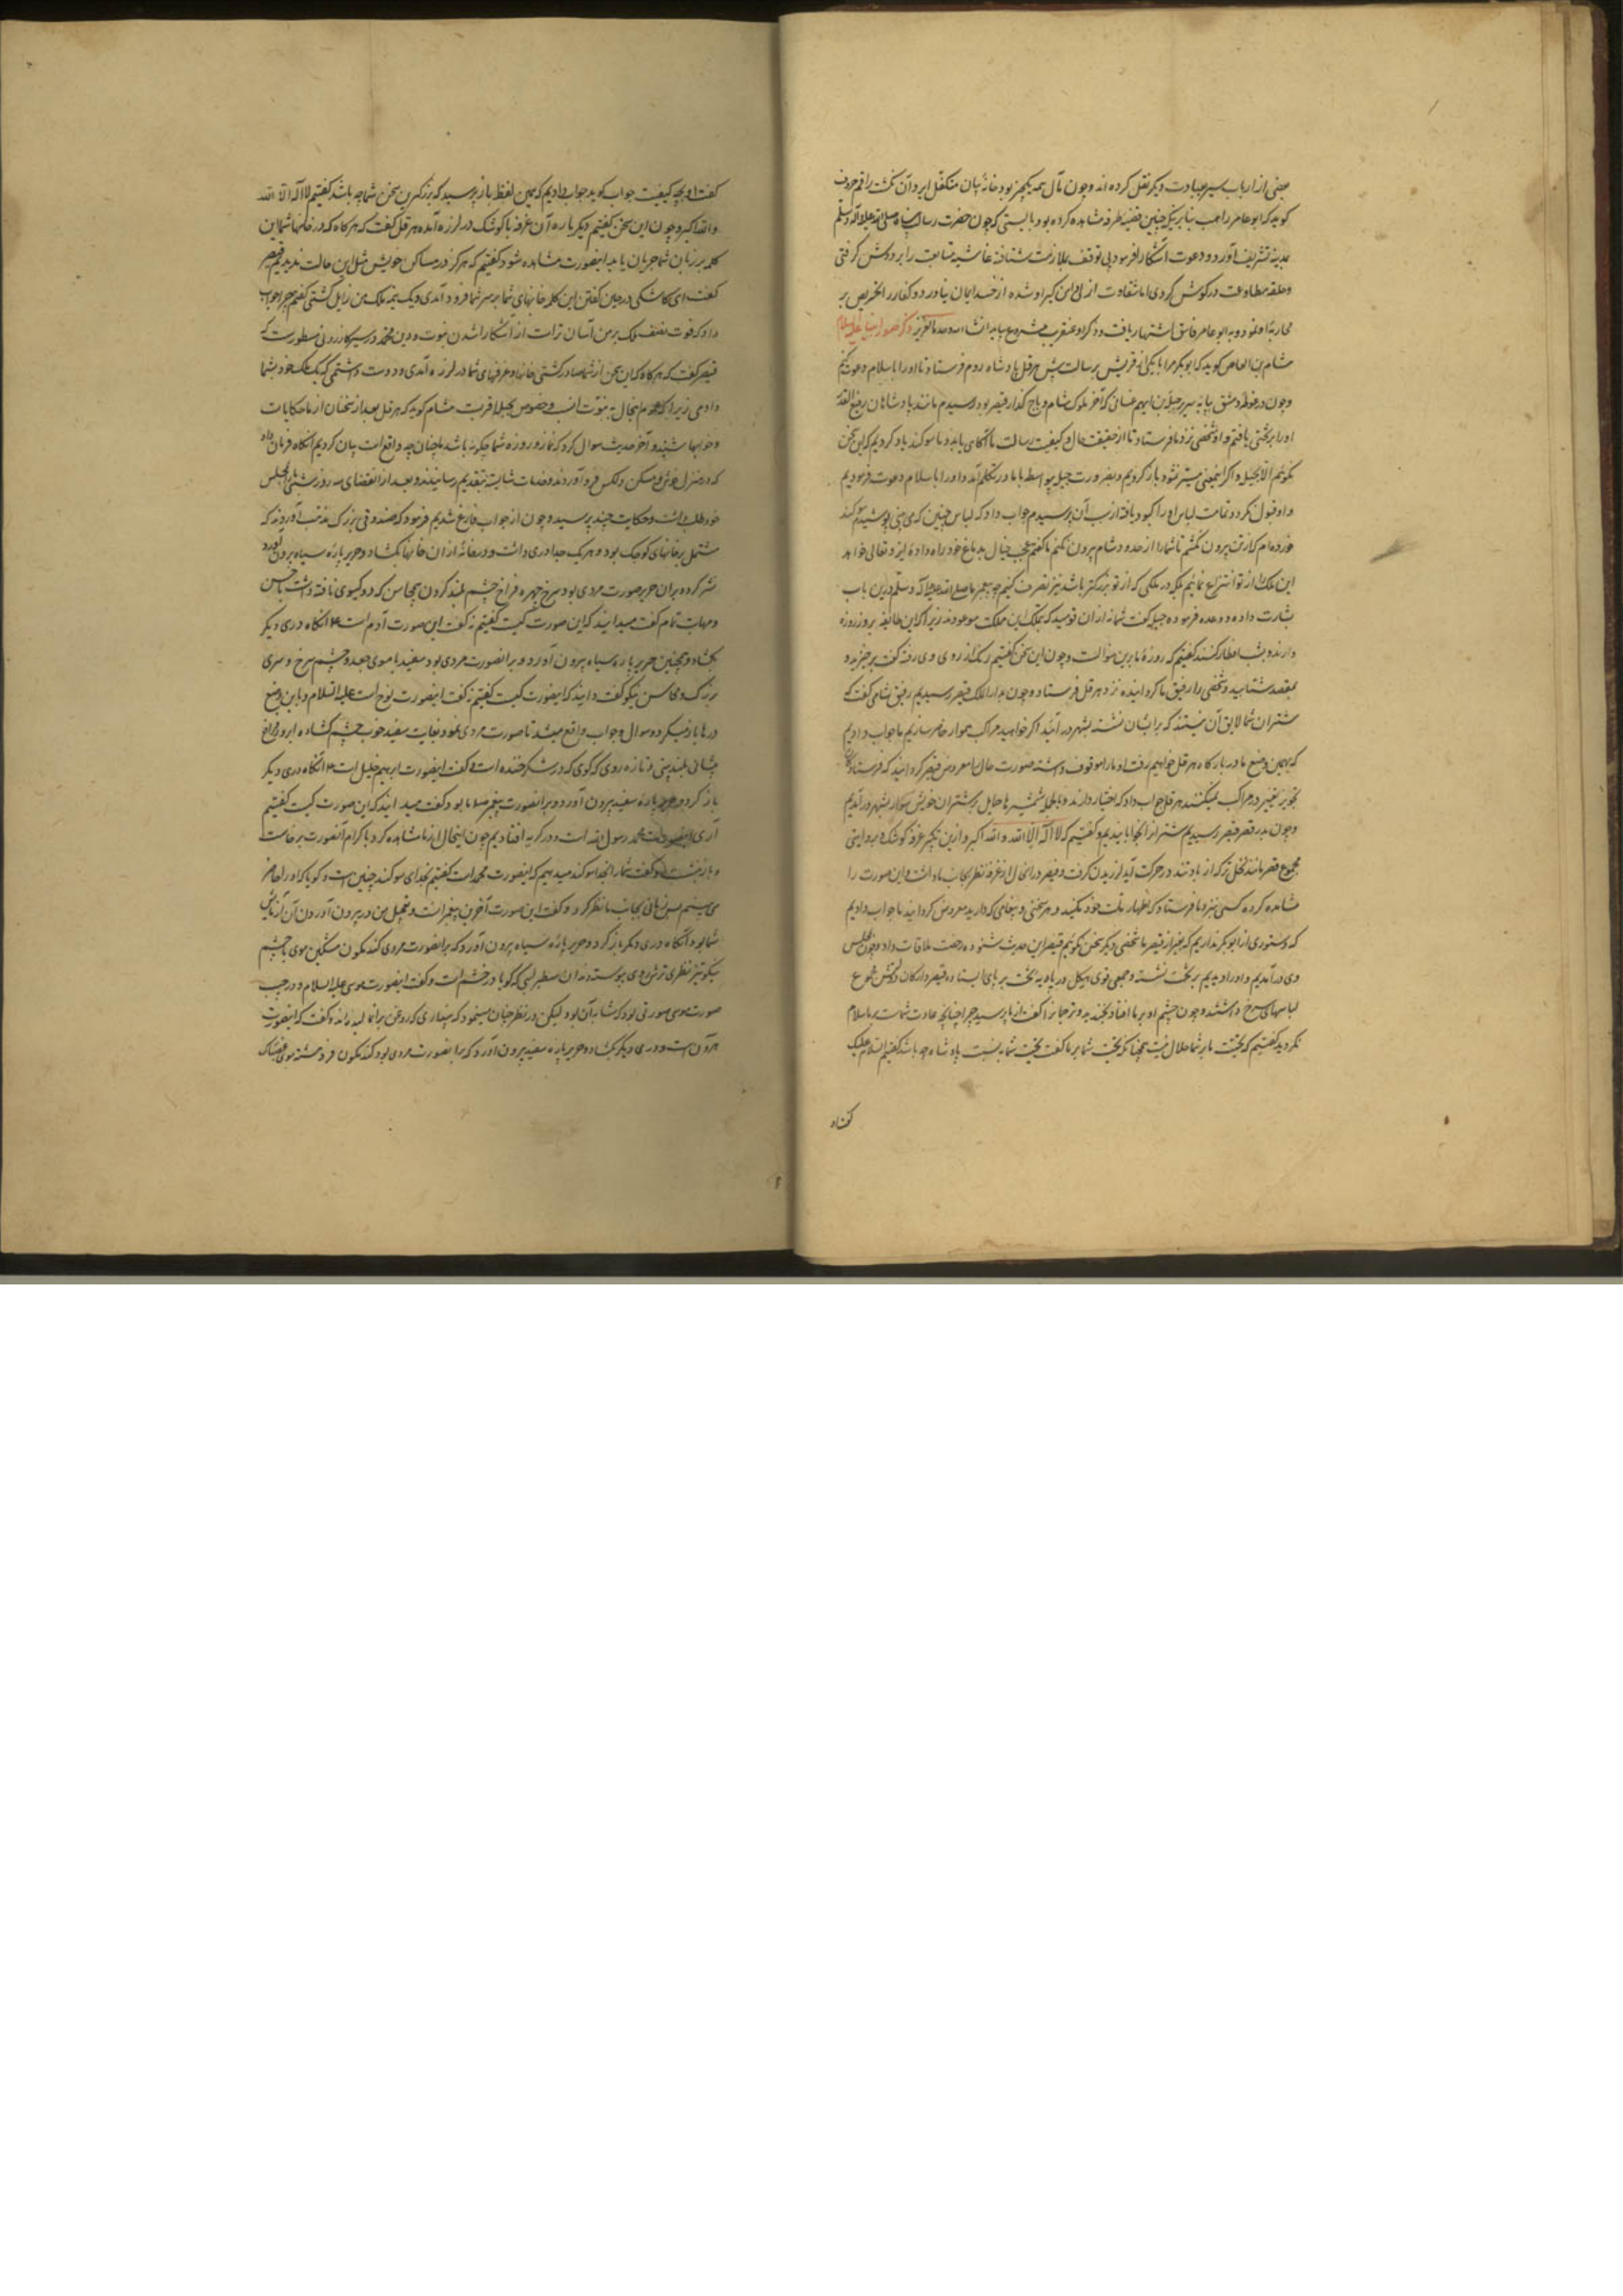 بعضی از ارباب سیر بعبادت دیگر نقل کرده اند و چون مآل همه یکچیز بود خامهٔ بیان متکفل ایراد آن نکشت راقم حروف
کوید که ابو عامر راهب بنابر آنکه چنین قضیه طرفه مشاهده کرده بود بایستی که چون حضرت رسالت پناه صلی الله علیه و آله وسلم
بمدینه تشریف آورد و دعوت آشکارا فرمود بی توقف بملازمت شتافته غاشیه متابعت را بر دوش کرفتی
و حلقه مطاوعت در کوش کردی اما شقاوت ازلی دامن کیر او شده از حسد ایمان نیاورد و کفار را تحریص بر
محاربهٔ او نمود و به ابو عامر فاسق اشتهار یافت و ذکر او عنقریب مشروع بیاید انشاء الله وحده العزیز ذکر صور انبیا علیهم السلام
هشام بن العاص کوید که ابوبکر مرا با یکی از قریش برسالت پیش هرقل پادشاه روم فرستاد تا او را باسلام دعوت کنیم
و چون در غوطه دمشق بپایه سریر جبله بن ایهم غسانی که آخر ملوک شام و باج کذار قیصر بود رسیدیم مانند پادشاهان رفیع القدر
او را بر تختی یافتیم و او شخصی نزد ما فرستاد تا از حقیقت حال و کیفیت رسالت ما آکاهی یابد و ما سوکند یاد کردیم که این سخن
نکوئیم الا بجبله و اکر اینمعنی میسر نشود باز کردیم و بضرورت جبله بیواسطه با ما در تکلم آمد و او را باسلام دعوت فرمودیم
و او قبول نکرد و تمامت لباس او را کبود یافته از سبب آن پرسیدیم جواب داد که لباس چنین که می بینی پوشیدم و سوکند
خورده ام که از تن بیرون نکنم تا شما را از حدود شام بیرون نکنم ما کفتیم عجب خیال بدماغ خود راه دادهٔ ایزد تعالی خواهد
این ملک را از تو انتزاع نمائیم بلکه در ملکی که از تو بزرکتر باشد نیز تصرف کنیم چه پیغمبر ما صلی الله علیه و آله وسلم درین باب
بشارت داده و وعده فرموده جبله کفت شما نه از ان قومید که بتملک این مملکت موعودند زیرا که این طایفه بروز روزه
دارند و بشب افطار کنند کفتیم که روزهٔ ما برین منوالست و چون این سخن کفتیم رنک از روی وی رفته کفت برخیزید و
بمقصد شتابید و شخصی را رفیق ما کردانیده نزد هرقل فرستاد و چون بدار الملک قیصر رسیدیم رفیق شامی کفت که
شتران شما لایق آن نیستند که بر ایشان نشسته بشهر درآئید اکر خواهید مراکب هموار حاضر سازیم ما جواب دادیم
که بهمین وضع ما در بارکاه هرقل خواهیم رفت او ما را موقوف داشته صورت حال را معروض قیصر کردانید که فرستادکان
تجویز تغییر در مراکب نمیکنند هرقل جواب داد که اختیار دارند و با شمشیرها حمایل بر شتران خویش سوار بشهر درآمدیم
و چون بدر قصر قیصر رسیدیم شتران را آنجا خوابانیدیم و کفتیم که لا اله الا الله و الله اکبر و ازین تکبیر غرفه کوشک و بروایتی
مجموع قصر مانند نخل تر که از باد تند در حرکت آید لرزیدن کرفت و قیصر در آنحال از غرفه نظر بجانب ما داشت و این صورت را
مشاهده کرده کسی نزد ما فرستاد که اظهار ملت خود نکنید و هر سخنی و پیغامی که دارید معروض کردانید ما جواب دادیم
که دستوری از ابوبکر نداریم که بغیر از قیصر با شخصی دیگر سخن کوئیم قیصر این حدیث شنوده رخصت ملاقات داد و چون بمجلس
وی درآمدیم و او را دیدیم بر تخت نشسته و جمعی قوی هیکل در پایه تخت بر پای ایستاده و قیصر و ارکان دولتش مجموع
لباسهای سرخ داشتند و چون چشم او بر ما افتاد بخندید و ترجمان را کفت از ما پرسید چرا چنانچه عادت شماست بر ما سلام
نکردید کفتیم که تحیت ما بر شما حلال نیست همچنانکه تحیت شما بر ما کفت تحیت شما به نسبت پادشاه چه باشد کفتیم السلام علیک
کفت او
کفت او بچه کیفیت جواب کوید جواب دادیم که بهمین لفظ باز پرسید که بزرکترین سخن شما چه باشد کفتیم لا اله الا الله
و الله اکبر و چون این سخن کفتیم دیکر باره آن غرفه یا کوشک در لرزه آمد هرقل کفت که هرکاه که در خانها شما این
کلمه بر زبان شما جریان یابد اینصورت مشاهده شود کفتیم که هرکز در مساکن خویش مثل این حالت ندیدیم قیصر
کفت ای کاشکی در حین کفتن این کلمه خانهای شما بر سر شما فرود آمدی و یک نیمه ملک من زایل کشتی کفتیم چرا جواب
داد که فوت نصف ملک بر من آسان تر است از آشکارا شدن نبوت و دین محمد و در سیر کازرونی مسطورست که
قیصر کفت که هرکاه که این سخن از شما صادر کشتی خانها و غرفهای شما در لرزه آمدی و دوست داشتمی که یک ملک خود بشما
دادمی زیرا که اینحال به نبوت انسب و خصوص بحیله اقربست هشام کوید که هرقل بعد از سخنان از ما حکایات
و جوابها شنید و آخر حدیث سوال کرد که نماز و روزه شما چکونه باشد ما چنانچه واقع است بیان کردیم آنکاه فرمان داد
که در منزل خوش و مسکن دلکش فرود آوردند و خدمات شایسته بتقدیم رسانیدند و بعد از انقضای سه روز شبی ما را بمجلس
خود طلب داشت و حکایت چند پرسید و چون از جواب فارغ شدیم فرمود که صندوقی بزرک مذهب آوردند که
مشتمل بر خانهای کوچک بود و هر یک جدا دری داشت و در خانهٔ از ان خانها بکشاد و حریر پارهٔ سیاه بیرون آورد
نشر کرد و بران حریر صورت مردی بود سرخ چهره فراخ چشم بلند کردن بی محاسن که دو کیسوی بافته داشت با حسن
و مهابت تمام کفت میدانید که این صورت کیست کفتیم نه کفت این صورت آدم است ع آنکاه دری دیگر
بکشاد و همچنین حریر پاره سیاه بیرون آورد و بر آنصورت مردی بود سفید با موی جعد و چشم سرخ و سری
بزرک و محاسن نیکو کفت دانید که اینصورت کیست کفتیم نه کفت اینصورت نوح است علیه السلام و باین وضع
درها باز میکرد و سوال و جواب واقع میشد تا صورت مردی نمود بغایت سفید خوب چشم کشاده ابرو فراخ
پیشانی بلند بینی و تازه روی که کوئی که در شکر خنده است و کفت اینصورت ابراهیم خلیل است ع آنکاه دری دیگر
باز کرد و حریر پارهٔ سفید بیرون آورد و بر آنصورت پیغمبر ما بود و کفت میدانید که این صورت کیست کفتیم
آری اینصورت محمد رسول الله است و در کریه افتادیم چون اینحال از ما مشاهده کرد با کرام آنصورت برخاست
و باز نشست و کفت شما را بخدا سوکند میدهیم که اینصورت محمد است کفتیم بخدای سوکند چنین است و کویا که او را حاضر
می بینیم پس زمانی بجانب ما نظر کرد و کفت این صورت آخرین پیغمبرانست و تعجیل من در بیرون آوردن آن آزمایش
شما بود آنکاه دری دیکر باز کرد و حریر پاره سیاه بیرون آورد که بر آنصورت مردی کندمکون مشکین موی با چشم
نیکو تیز نظری ترش روی پیوسته دندان سطبر لبی که کویا در خشم است و کفت اینصورت موسی علیه السلام و در جنب
صورت موسی صورتی بود که مشابه آن بود لیکن در نظر چنان مینمود که پنداری که روغن بر آن مالیده اند و کفت که اینصورت
هرون است و دری دیگر بکشاد و حریر پاره سفید بیرون آورد که بر آنصورت مردی بود کندمکون فرو هشته موی غضبناک